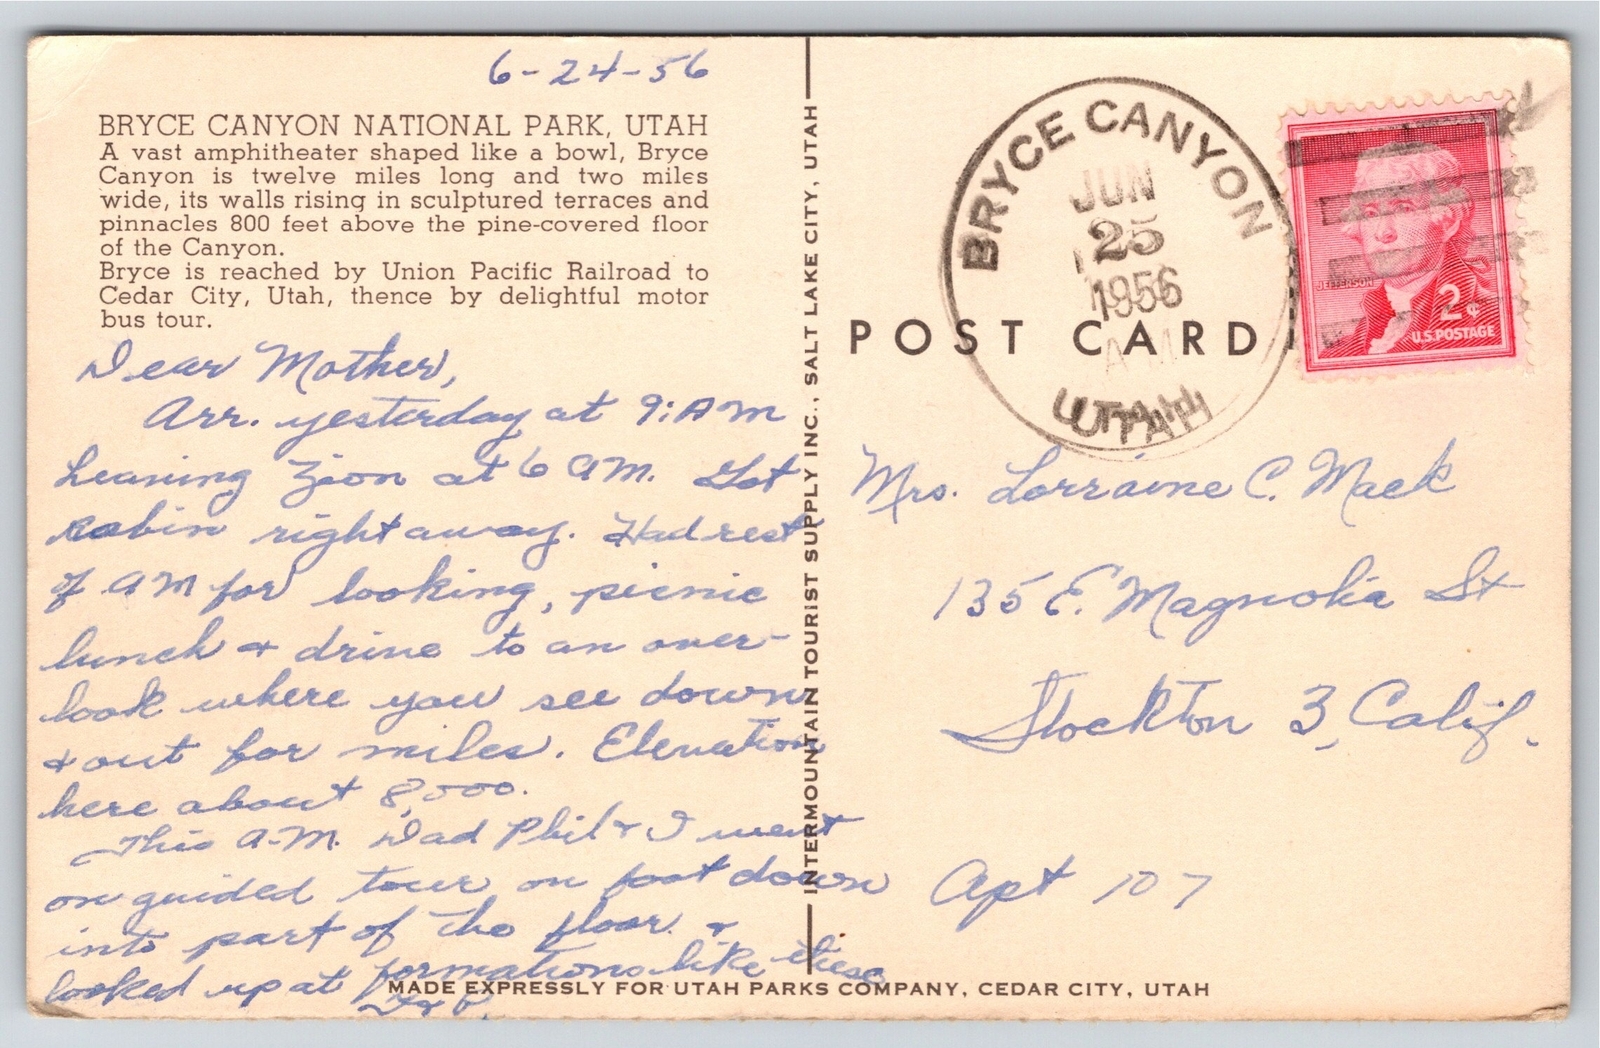 6-24-56
BRYCE CANYON NATIONAL PARK, UTAH
A vast amphitheater shaped like a bowl, Bryce
Canyon is twelve miles long and two miles
wide, its walls rising in sculptured terraces and
pinnacles 800 feet above the pine-covered floor
of the Canyon.
Bryce is reached by Union Pacific Railroad to
Cedar City, Utah, thence by delightful motor
bus tour.
Dear Mother,
Arr. yesterday at 9:AM
Leaving Zion at 6 AM. Got
cabin right away. Had rest
of AM for looking, picnic
lunch & drive to an over-
look where you see down
& out for miles. Elevation
here about 8,000.
This A.M. Dad Phil & I went
on guided tour on foot down
into part of the floor. &
looked up at formations like these
INTERMOUNTAIN TOURIST SUPPLY INC., SALT LAKE CITY, UTAH
POST CARD
BRYCE CANYON
JUN
25
1956
AM
UTAH
JEFFERSON
2¢
U.S. POSTAGE
Mrs. Lorraine C. Mack
135 E. Magnolia St
Stockton 3, Calif.
Apt 107
MADE EXPRESSLY FOR UTAH PARKS COMPANY, CEDAR CITY, UTAH